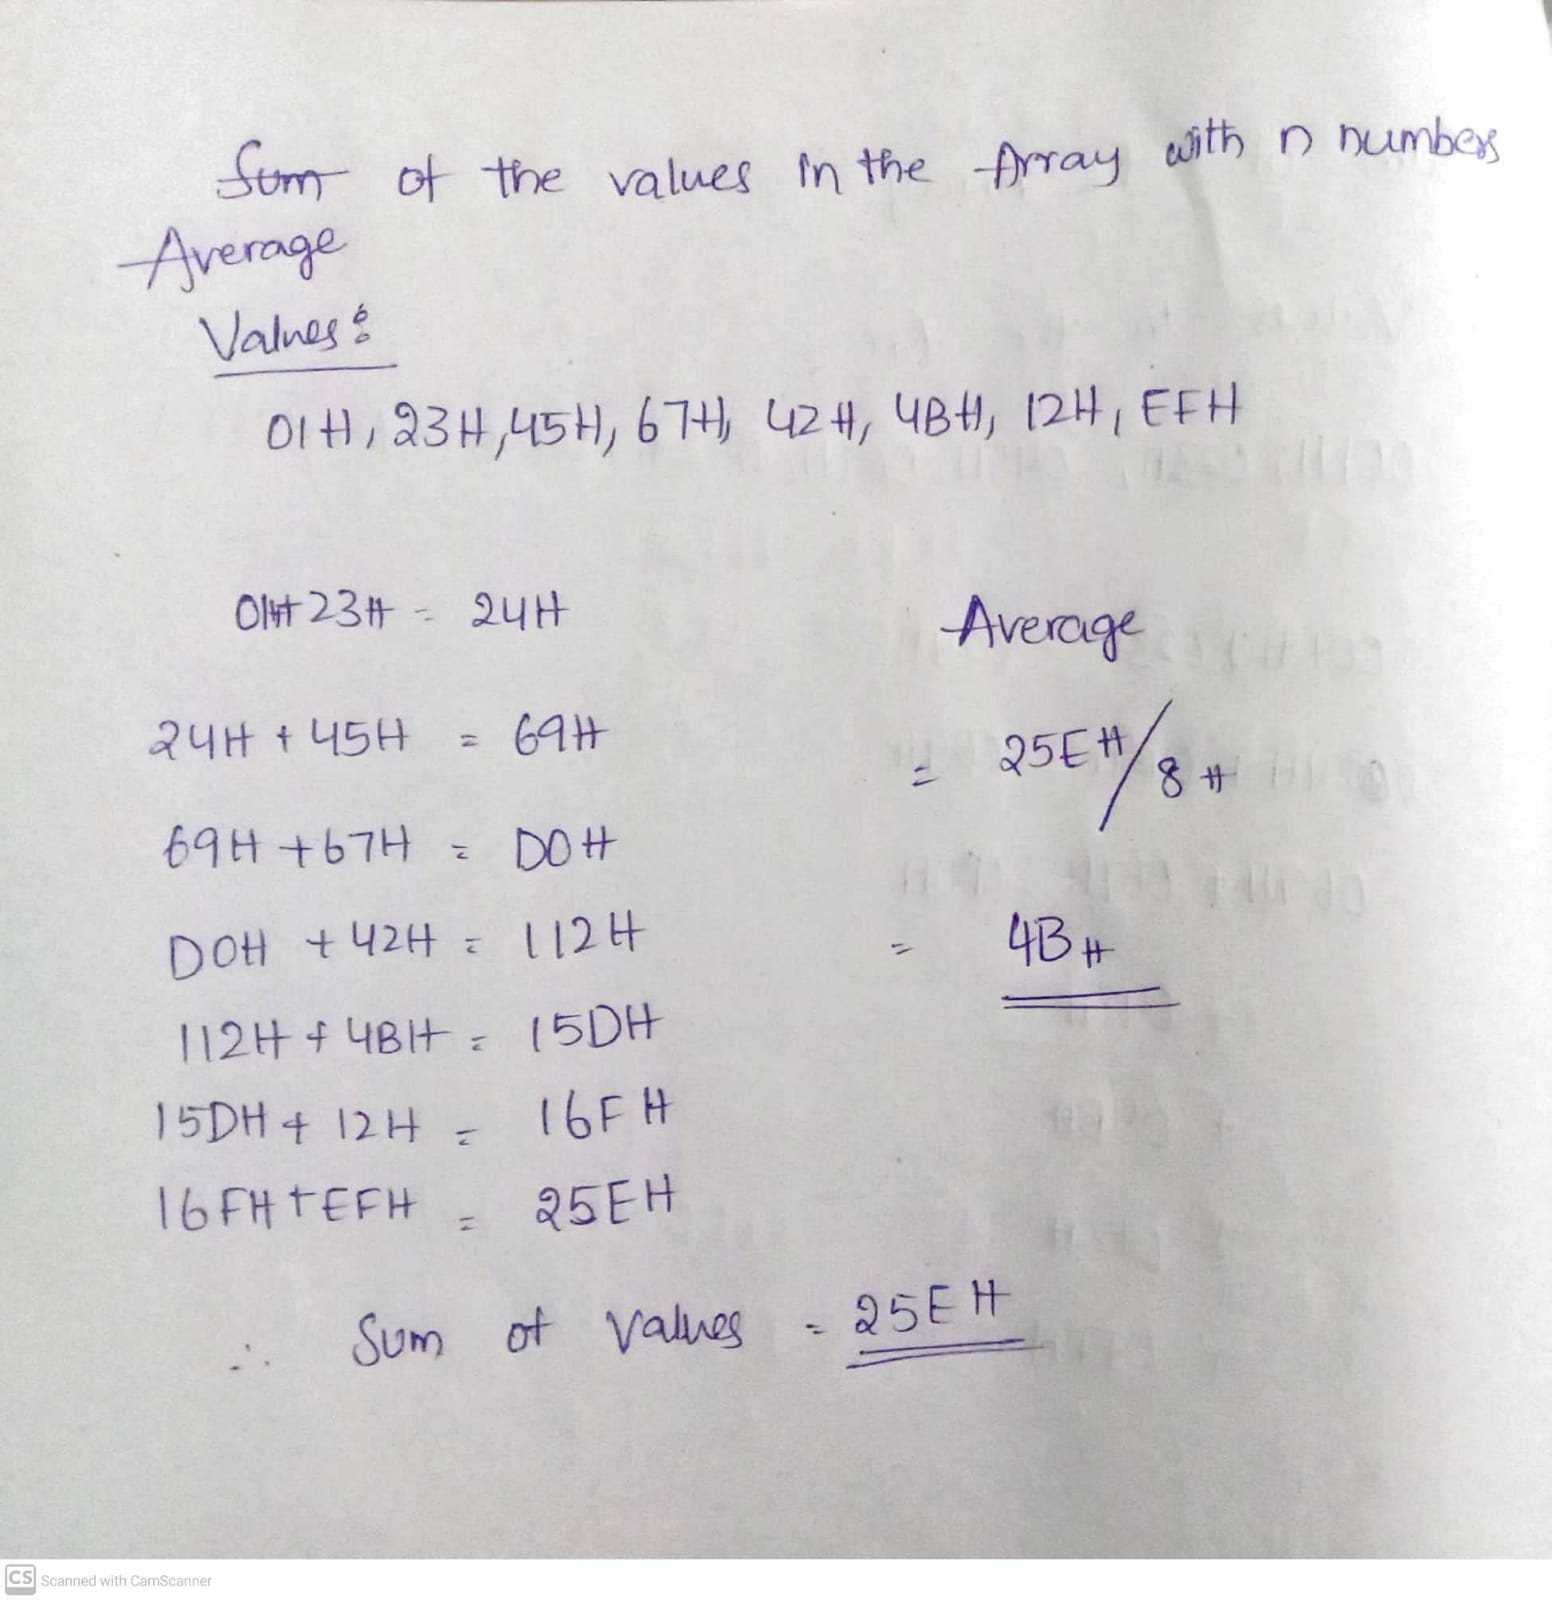 Sum of the values in the Array with n numbers
Average
Values:
01H, 23H, 45H, 67H, 42H, 4BH, 12H, EFH
01H+23H = 24H
24H + 45H = 69H
69H + 67H = D0H
D0H + 42H = 112H
112H + 4BH = 15DH
15DH + 12H = 16FH
16FH + EFH = 25EH
∴ Sum of values = 25EH
Average
= 25EH/8H
= 4BH
CS Scanned with CamScanner